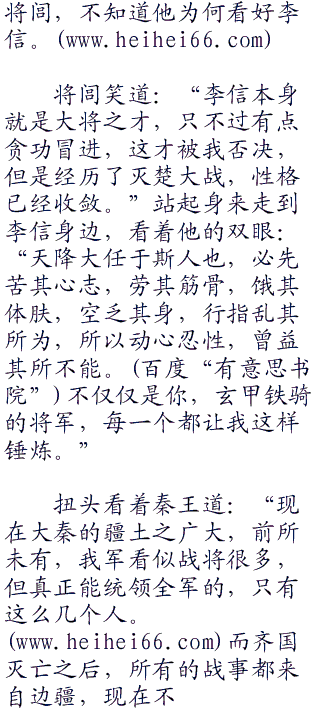 将闾，不知道他为何看好李
信。(www.heihei66.com)
将闾笑道：“李信本身
就是大将之才，只不过有点
贪功冒进，这才被我否决，
但是经历了灭楚大战，性格
已经收敛。”站起身来走到
李信身边，看着他的双眼：
“天降大任于斯人也，必先
苦其心志，劳其筋骨，饿其
体肤，空乏其身，行指乱其
所为，所以动心忍性，曾益
其所不能。(百度“有意思书
院”)不仅仅是你，玄甲铁骑
的将军，每一个都让我这样
锤炼。”
扭头看着秦王道：“现
在大秦的疆土之广大，前所
未有，我军看似战将很多，
但真正能统领全军的，只有
这么几个人。
(www.heihei66.com)而齐国
灭亡之后，所有的战事都来
自边疆，现在不